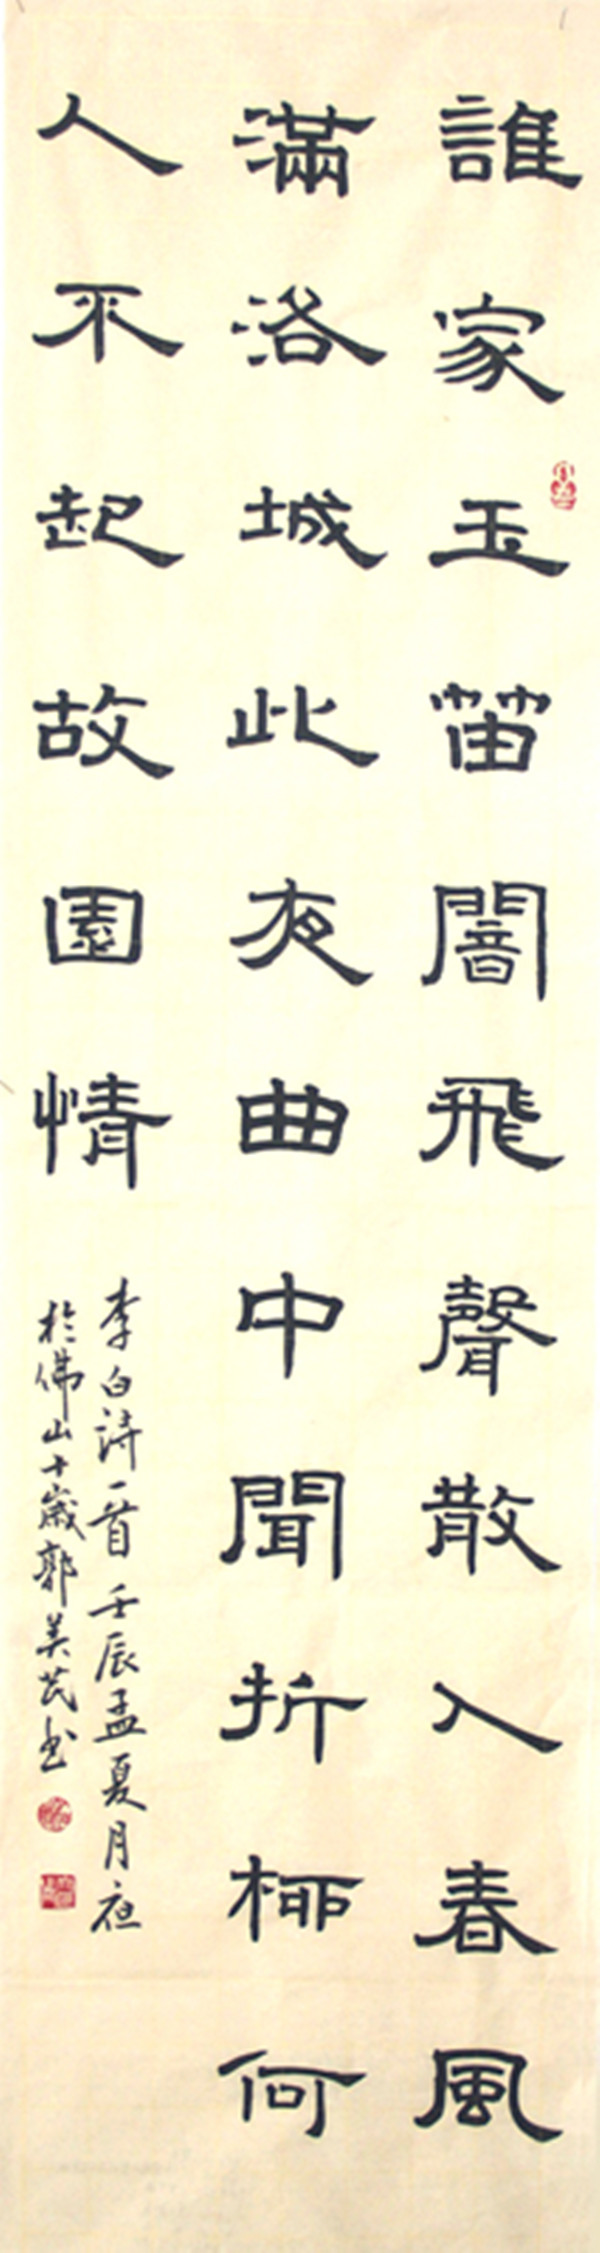 誰家玉笛闇飛聲散入春風
滿洛城此夜曲中聞折栁何
人不起故園情
李白詩一首壬辰孟夏月夜
於佛山十歲郭美芪书